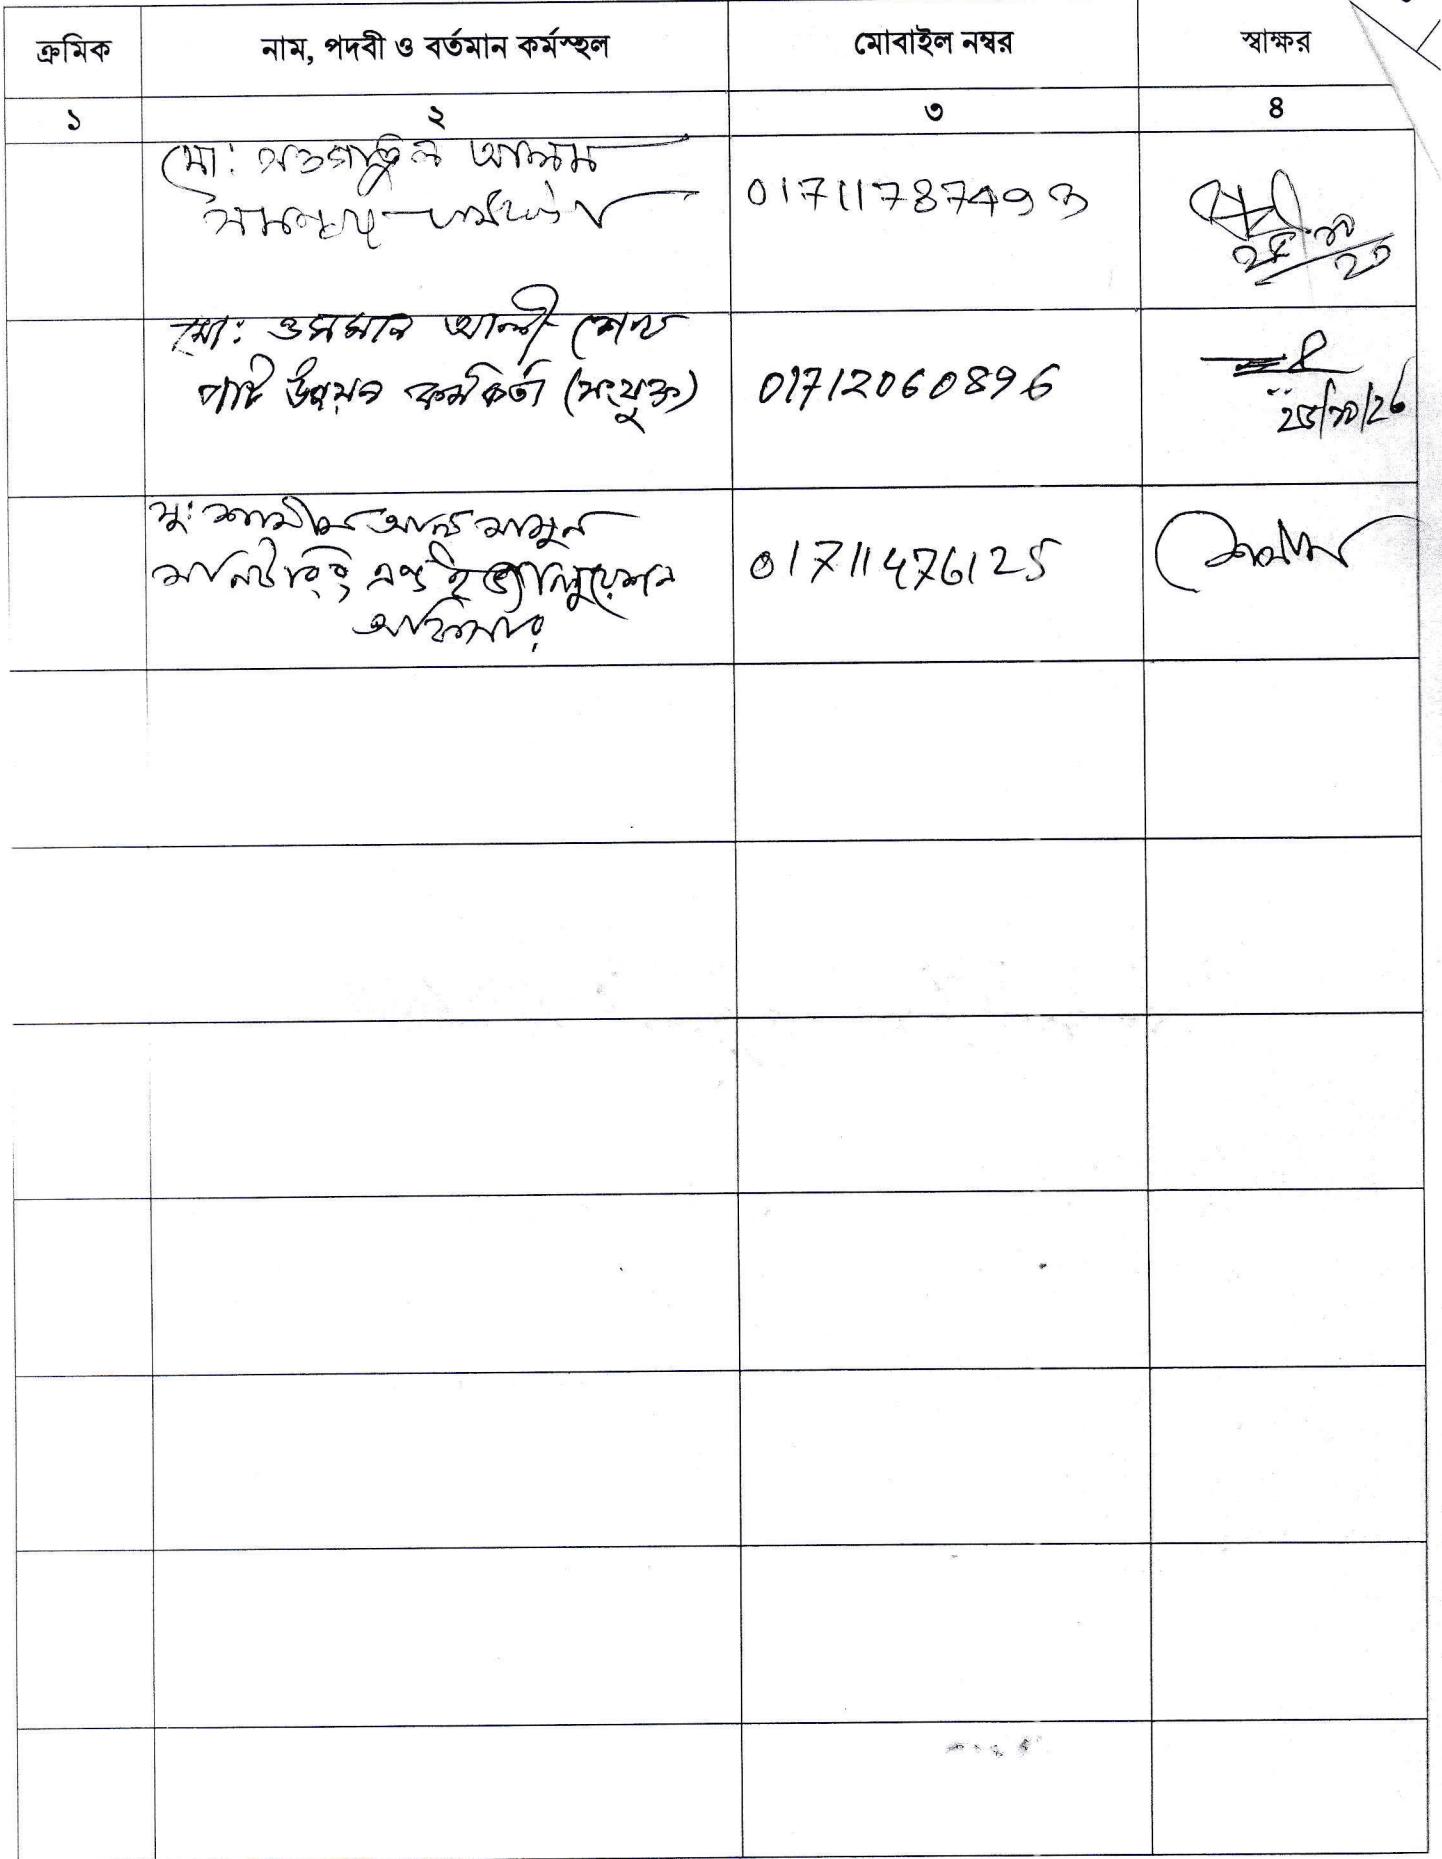 ক্রমিক নাম, পদবী ও বর্তমান কর্মস্হল মোবাইল নম্বর স্বাক্ষর
১ ২ ৩ ৪
মো: আলম
01711787493
মো: ওসমান আলী শেখ
পাট উন্নয়ন কর্মকর্তা (সংযুক্ত) 01712060896
মু: শামীম আল মামুন
মনিটরিং এন্ড ইভ্যালুয়েশন 01711476125
অফিসার